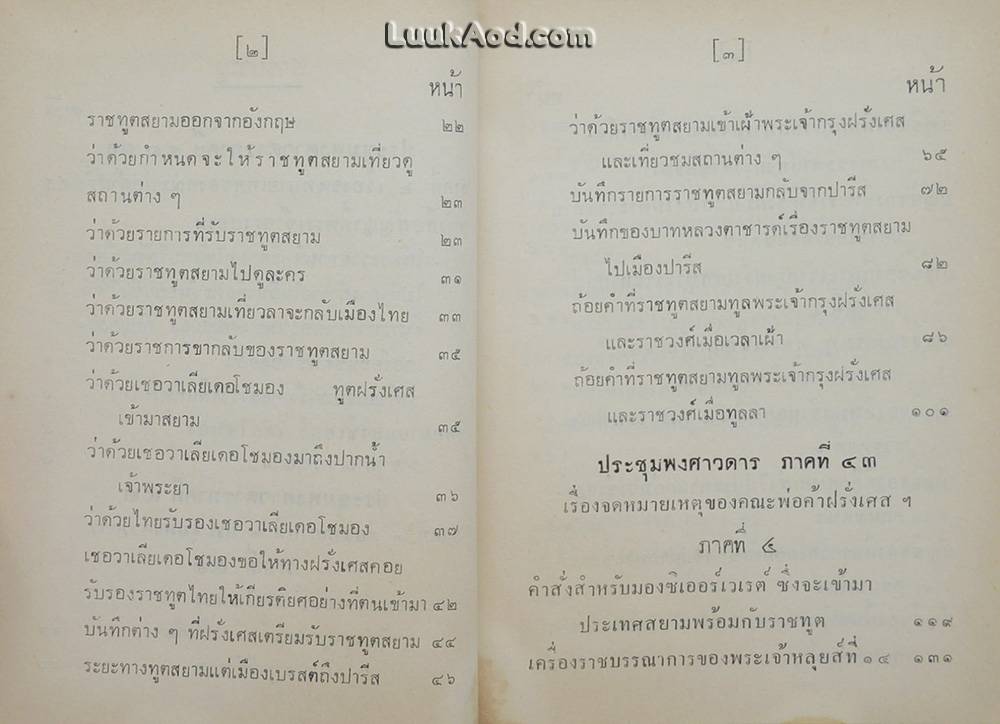 LuukAod.com
[๒]
หน้า
ราชทูตสยามออกจากอังกฤษ ๒๒
ว่าด้วยกำหนดจะให้ราชทูตสยามเที่ยวดู
สถานต่าง ๆ ๒๓
ว่าด้วยรายการที่รับราชทูตสยาม ๒๓
ว่าด้วยราชทูตสยามไปดูละคร ๓๑
ว่าด้วยราชทูตสยามเที่ยวลาจะกลับเมืองไทย ๓๓
ว่าด้วยราชการขากลับของราชทูตสยาม ๓๕
ว่าด้วยเชอวาเลียเดอโชมอง ทูตฝรั่งเศส
เข้ามาสยาม ๓๕
ว่าด้วยเชอวาเลียเดอโชมองมาถึงปากน้ำ
เจ้าพระยา ๓๖
ว่าด้วยไทยรับรองเชอวาเลียเดอโชมอง ๓๗
เชอวาเลียเดอโชมองขอให้ทางฝรั่งเศสคอย
รับรองราชทูตไทยให้เกียรติยศอย่างที่ตนเข้ามา ๔๒
บันทึกต่าง ๆ ที่ฝรั่งเศสเตรียมรับราชทูตสยาม ๔๔
ระยะทางทูตสยามแต่เมืองเบรสต์ถึงปารีส ๔๖
[๓]
หน้า
ว่าด้วยราชทูตสยามเข้าเฝ้าพระเจ้ากรุงฝรั่งเศส
และเที่ยวชมสถานต่าง ๆ ๖๕
บันทึกรายการราชทูตสยามกลับจากปารีส ๗๒
บันทึกของบาทหลวงตาชารด์เรื่องราชทูตสยาม
ไปเมืองปารีส ๘๒
ถ้อยคำที่ราชทูตสยามทูลพระเจ้ากรุงฝรั่งเศส
และราชวงศ์เมื่อเวลาเฝ้า ๘๖
ถ้อยคำที่ราชทูตสยามทูลพระเจ้ากรุงฝรั่งเศส
และราชวงศ์เมื่อทูลลา ๑๐๑
ประชุมพงศาวดาร ภาคที่ ๔๓
เรื่องจดหมายเหตุของคณะพ่อค้าฝรั่งเศส ฯ
ภาคที่ ๔
คำสั่งสำหรับมองซิเออร์เวเรต์ ซึ่งจะเข้ามา
ประเทศสยามพร้อมกับราชทูต ๑๑๙
เครื่องราชบรรณาการของพระเจ้าหลุยส์ที่ ๑๔ ๑๓๑